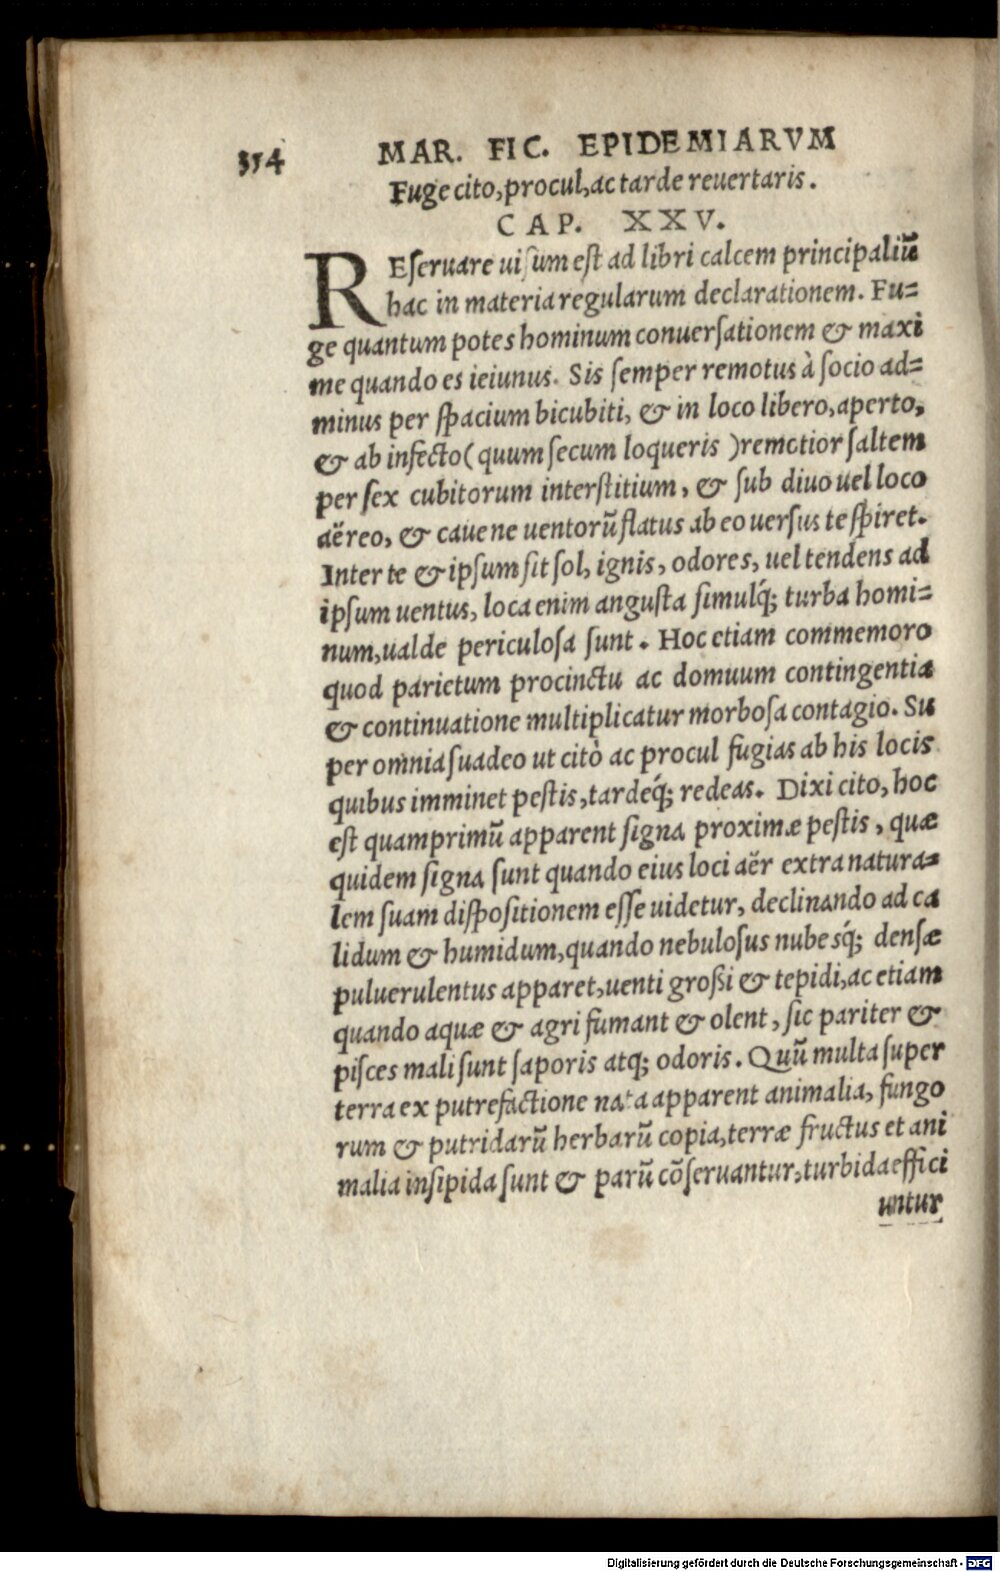 354 MAR. FIC. EPIDEMIARVM
Fuge cito, procul, ac tarde reuertaris.
CAP. XXV.
REſeruare uiſum eſt ad libri calcem principaliũ
hac in materia regularum declarationem. Fu=
ge quantum potes hominum conuerſationem & maxi
me quando es ieiunus. Sis ſemper remotus à ſocio ad=
minus per ſpacium bicubiti, & in loco libero, aperto,
& ab infecto (quum ſecum loqueris) remotior ſaltem
per ſex cubitorum interſtitium, & ſub diuo uel loco
aëreo, & caue ne uentorũ flatus ab eo uerſus te ſpiret.
Inter te & ipſum ſit ſol, ignis, odores, uel tendens ad
ipſum uentus, loca enim anguſta ſimulq́; turba homi=
num, ualde periculoſa ſunt. Hoc etiam commemoro
quod parietum procinctu ac domuum contingentia
& continuatione multiplicatur morboſa contagio. Su
per omnia ſuadeo ut citò ac procul fugias ab his locis
quibus imminet peſtis, tardeq́; redeas. Dixi cito, hoc
eſt quamprimũ apparent ſigna proximæ peſtis, quæ
quidem ſigna ſunt quando eius loci aër extra natura=
lem ſuam diſpoſitionem eſſe uidetur, declinando ad ca
lidum & humidum, quando nebuloſus nubesq́; denſæ
puluerulentus apparet, uenti groſsi & tepidi, ac etiam
quando aquæ & agri fumant & olent, ſic pariter &
piſces mali ſunt ſaporis atq; odoris. Quũ multa ſuper
terra ex putrefactione nata apparent animalia, fungo
rum & putridarũ herbarũ copia, terræ fructus et ani
malia inſipida ſunt & parũ cõſeruantur, turbida effici
untur
Digitalisierung gefördert durch die Deutsche Forschungsgemeinschaft - DFG